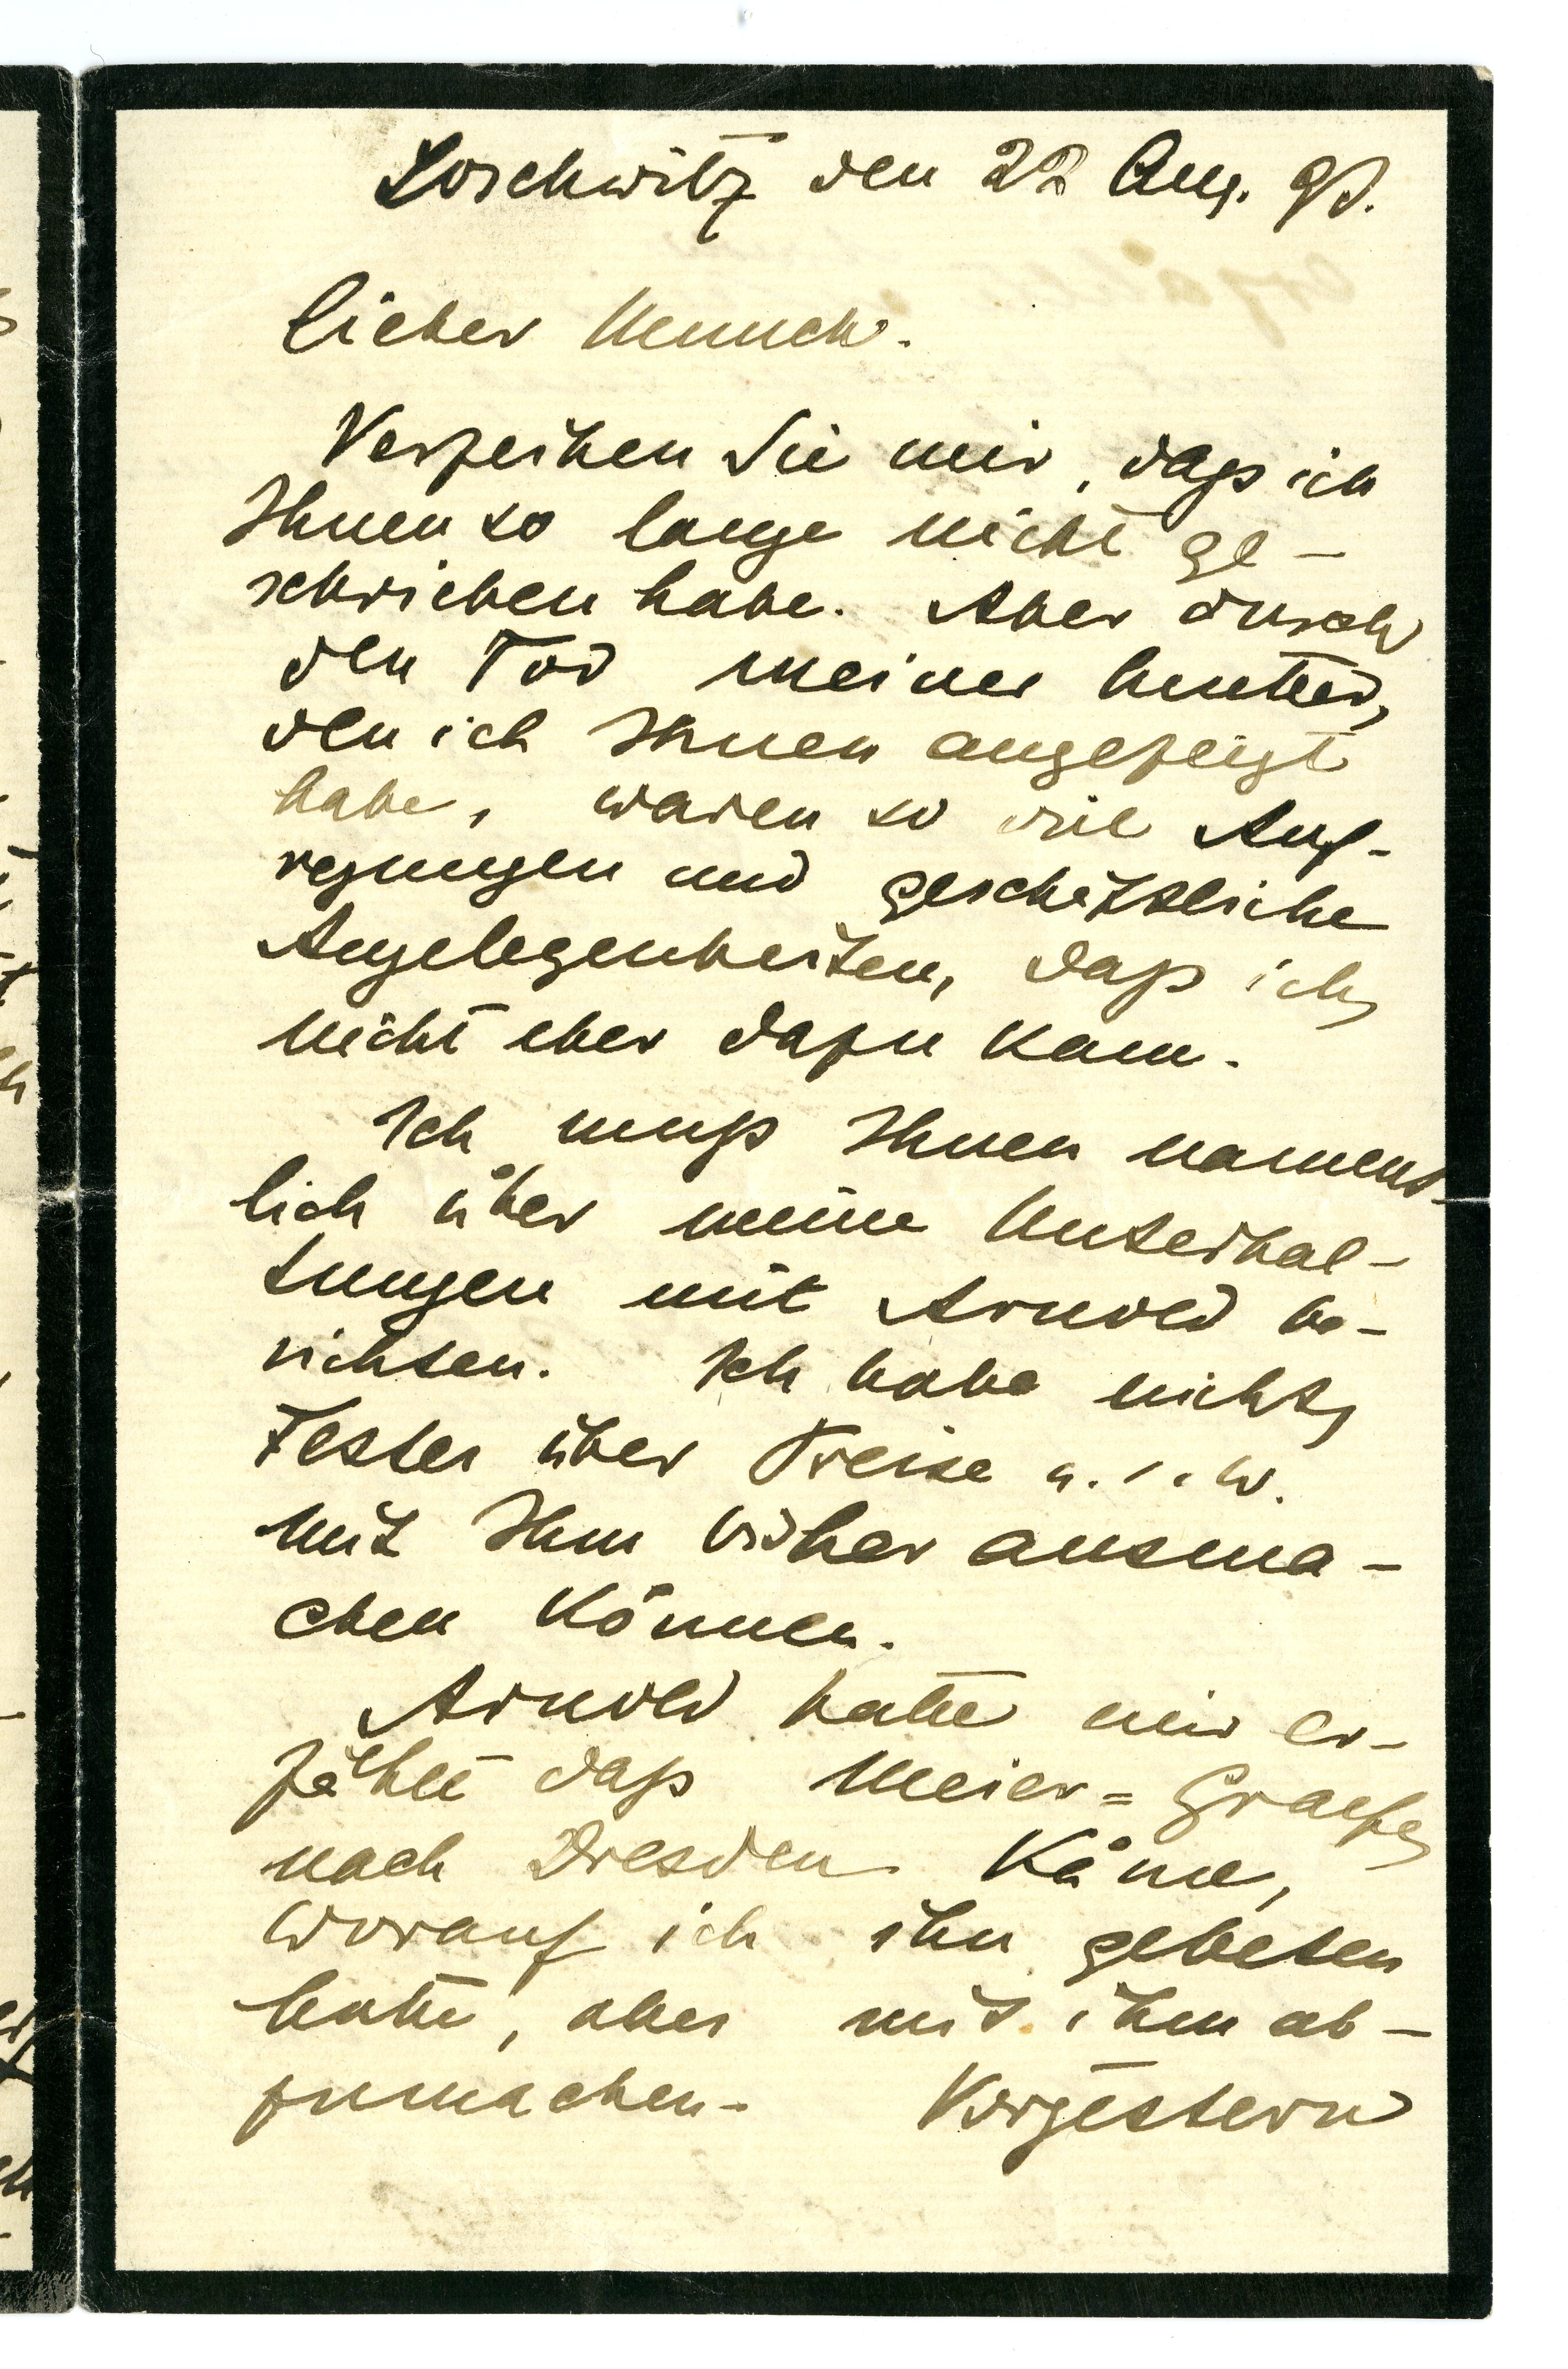 Loschwitz den 22 Aug. 95.
Lieber Munch.
Verzeihen Sie mir, daß ich
Ihnen so lange nicht ge-
schrieben habe. Aber durch
den Tod meiner Mutter,
den ich Ihnen angezeigt
habe, waren so viel Auf-
regungen und geschäftliche
Angelegenheiten, daß ich
nicht eher dazu kam.
Ich muß Ihnen nament-
lich über meine Unterhal-
tungen mit Arnold be-
richten. Ich habe nichts
Festes über Preise u. s. w.
mit Ihm bisher ausma-
chen können.
Arnold hatte mir er-
zählt daß Meier=Graefe
nach Dresden käme,
worauf ich ihn gebeten
hatte, alles mit ihm ab-
zumachen. Vorgestern